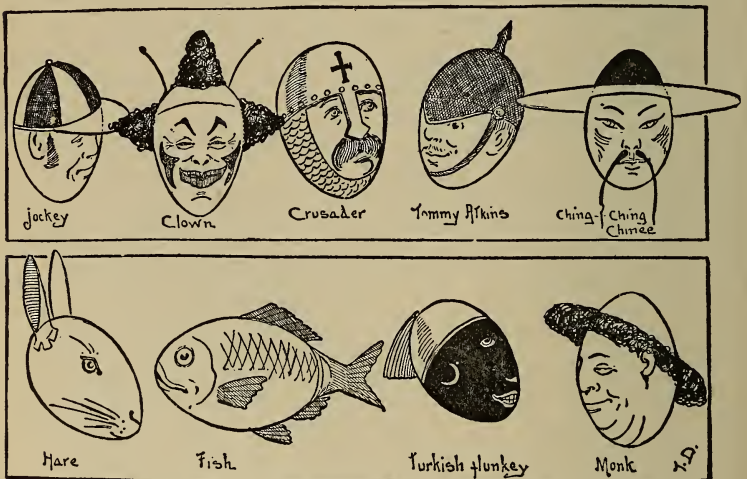 Jockey
Clown
Crusader
Tommy Atkins
Ching-Ching
Chinee
Hare
Fish
Turkish flunkey
Monk
J.D.